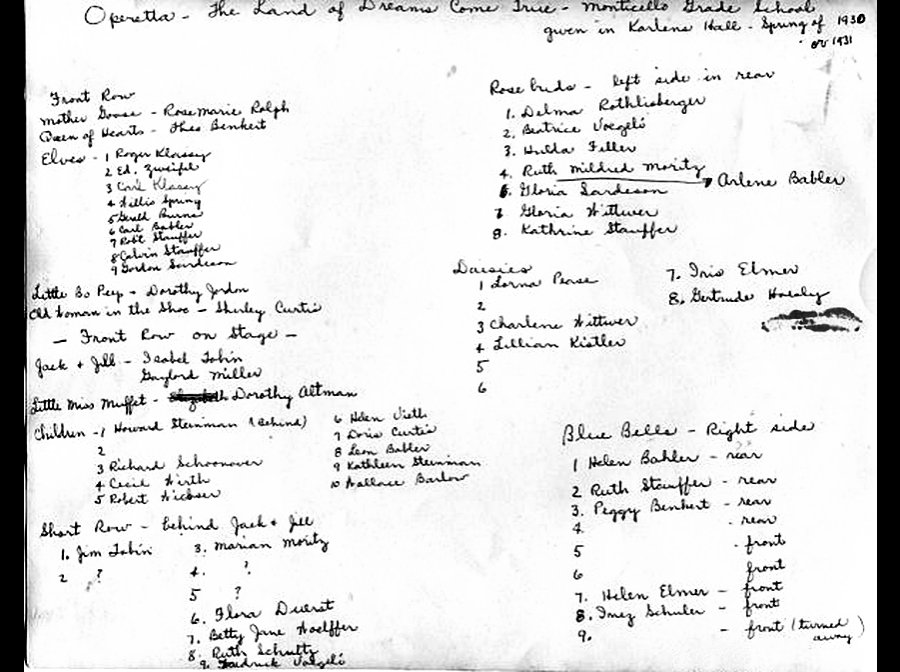 Operetta - The Land of Dreams Come True - Monticello Grade School
given in Karlens Hall - Spring of 1930
or 1931
Front Row
Mother Goose - Rose Marie Ralph
Queen of Hearts - Theo Benkert
Elves - 1 Roger Klassy
2 Ed. Zweifel
3 Carl Klassy
4 Willis Spring
5 Gerald Burns
6 Carl Babler
7 Robt Stauffer
8 Calvin Stauffer
9 Gordon Sardeson
Little Bo Peep - Dorothy Jordon
Old Woman in the Shoe - Shirley Curtis
- Front Row on Stage -
Jack & Jill - Isabel Tobin
Gaylord Miller
Little Miss Muffet - Dorothy Altman
Children - 1 Howard Steinman (Behind)
2
3 Richard Schoonover
4 Cecil Wirth
5 Robert Wichser
6 Helen Vieth
7 Doris Curtis
8 Leon Babler
9 Kathleen Steinman
10 Wallace Barlow
Short Row - behind Jack & Jill
1. Jim Tobin
2 ?
3. Marian Moritz
4. ?
5 ?
6. Flora Duerst
7. Betty Jane Hoelffer
8. Ruth Schultz
9. Voegeli
Rose buds - left side in rear
1. Delma Rothlisberger
2. Beatrice Voegeli
3. Hulda Feller
4. Ruth Mildred Moritz
Arlene Babler
6. Gloria Sardeson
7 Gloria Wittwer
8. Kathrine Stauffer
Daisies
1 Lorna Pease
2
3 Charlene Wittwer
4 Lillian Kistler
5
6
7. Iris Elmer
8. Gertrude Haesly
Blue Bells - Right side
1 Helen Babler - rear
2 Ruth Stauffer - rear
3. Peggy Benkert - rear
4. - rear
5 - front
6 front
7. Helen Elmer - front
8. Inez Schuler - front
9. - front (turned
away)